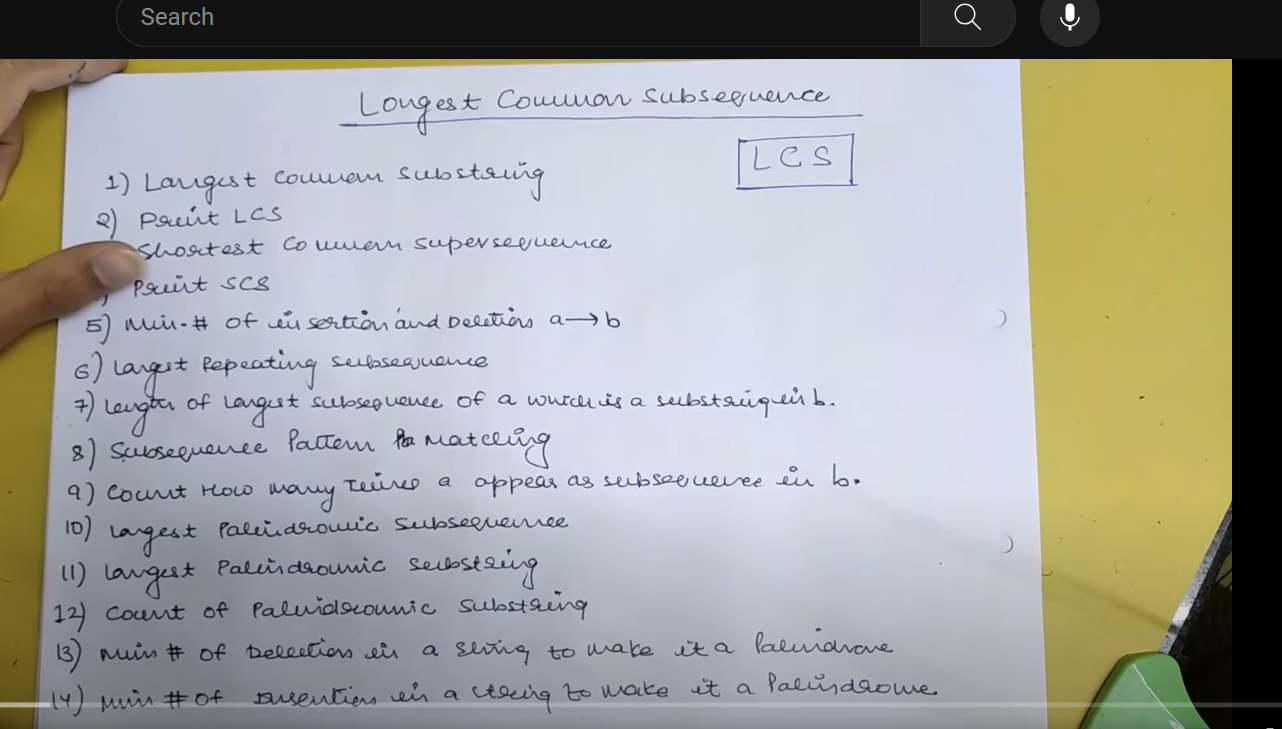 Search
Longest Common Subsequence
LCS
1) Largest Common Substring
2) Print LCS
Shortest Common Supersequence
) Print SCS
5) Min # of insertion and Deletion a→b
6) Largest Repeating subsequence
7) Length of largest subsequence of a which is a substring in b.
8) Subsequence Pattern Matching
9) Count How many Times a appear as subsequence in b.
10) Largest Palindromic Subsequence
11) Largest Palindromic Substring
12) Count of Palindromic Substring
13) Min # of Deletion in a string to make it a Palindrome
14) Min # of Insertion in a string to make it a Palindrome